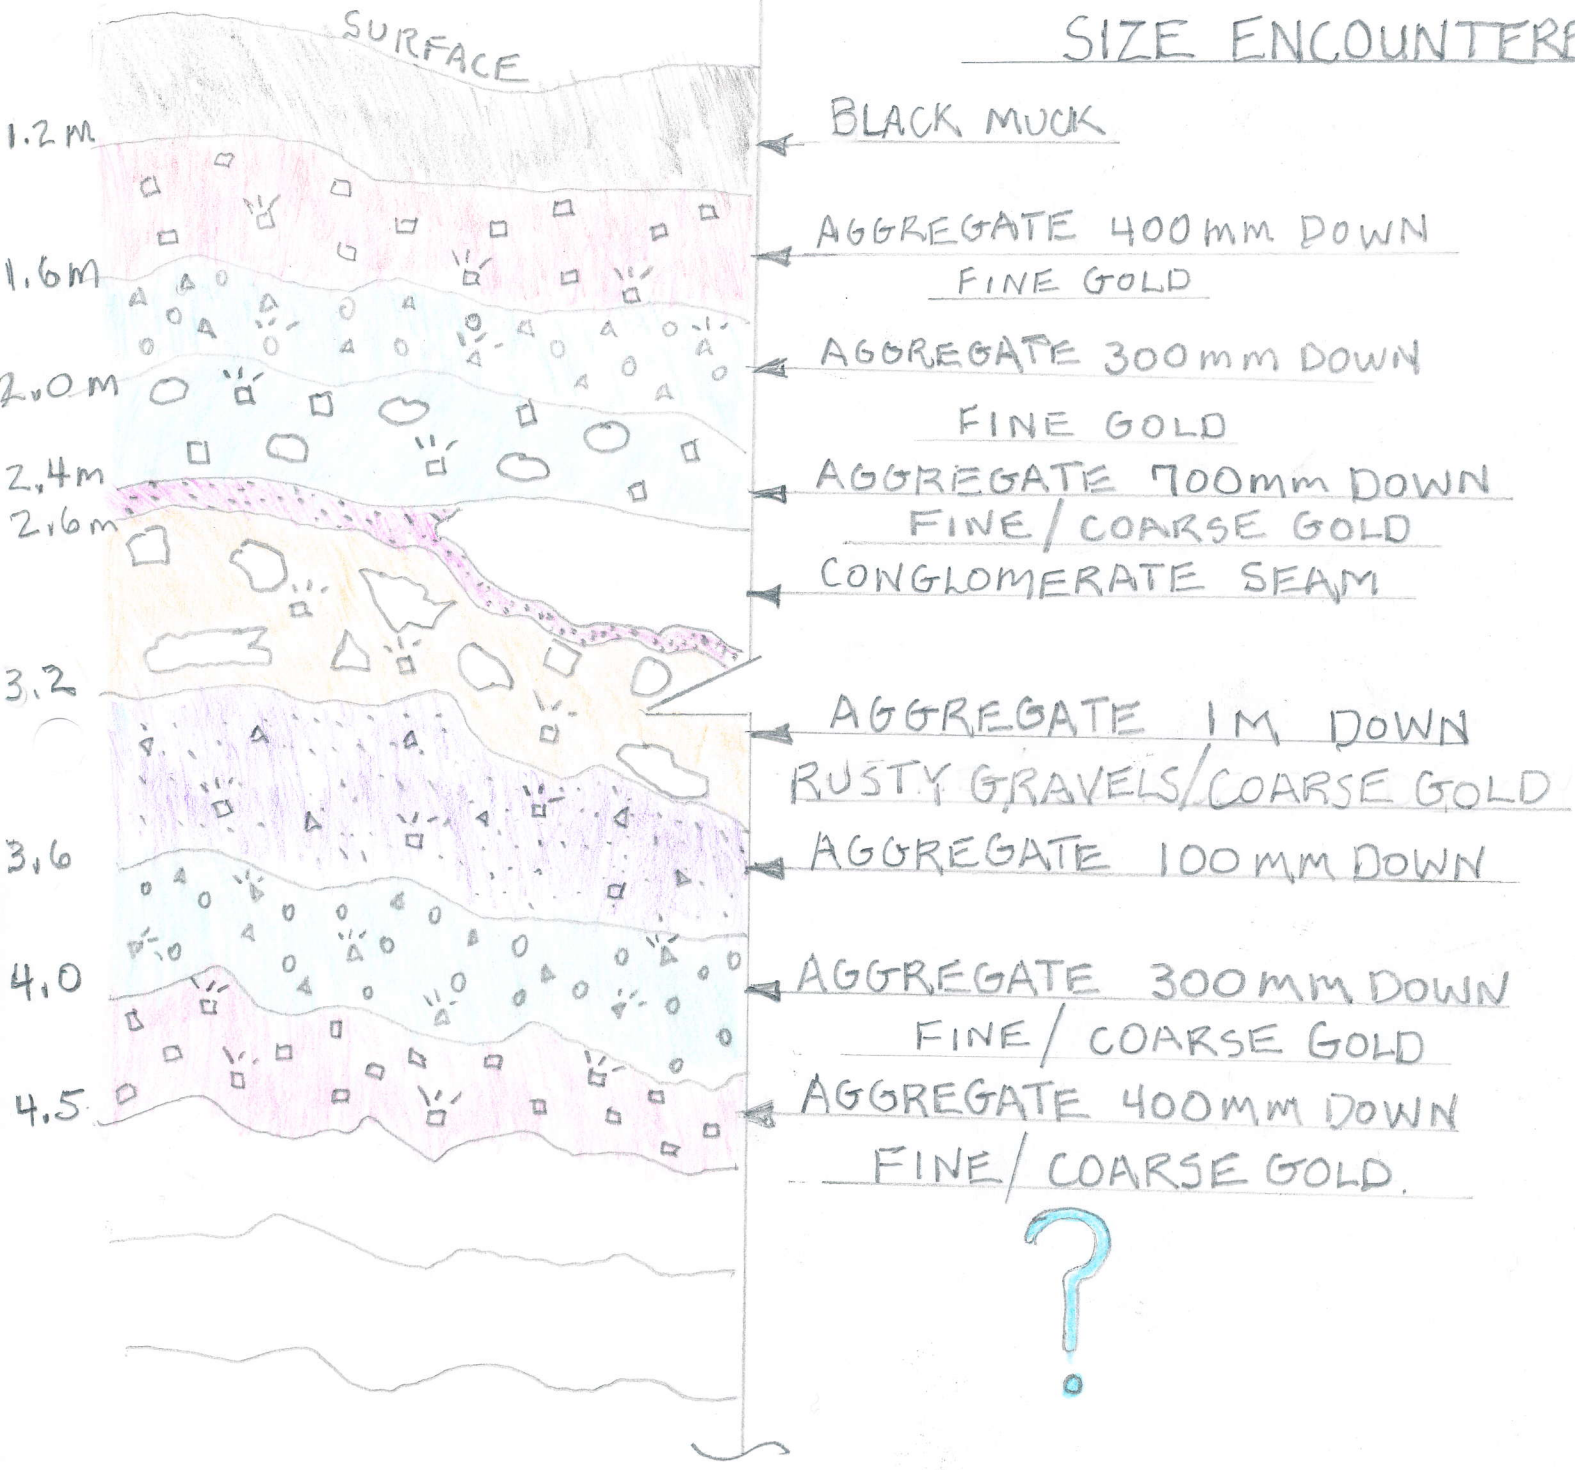 SIZE ENCOUNTERE
SURFACE
1.2 m
BLACK MUCK
AGGREGATE 400mm DOWN
1.6m
FINE GOLD
AGGREGATE 300mm DOWN
2.0m
FINE GOLD
2.4m
AGGREGATE 700mm DOWN
2.6m
FINE/COARSE GOLD
CONGLOMERATE SEAM
3.2
AGGREGATE 1M DOWN
RUSTY GRAVELS/COARSE GOLD
3.6
AGGREGATE 100mm DOWN
4.0
AGGREGATE 300mm DOWN
FINE/COARSE GOLD
4.5
AGGREGATE 400mm DOWN
FINE/COARSE GOLD.
?